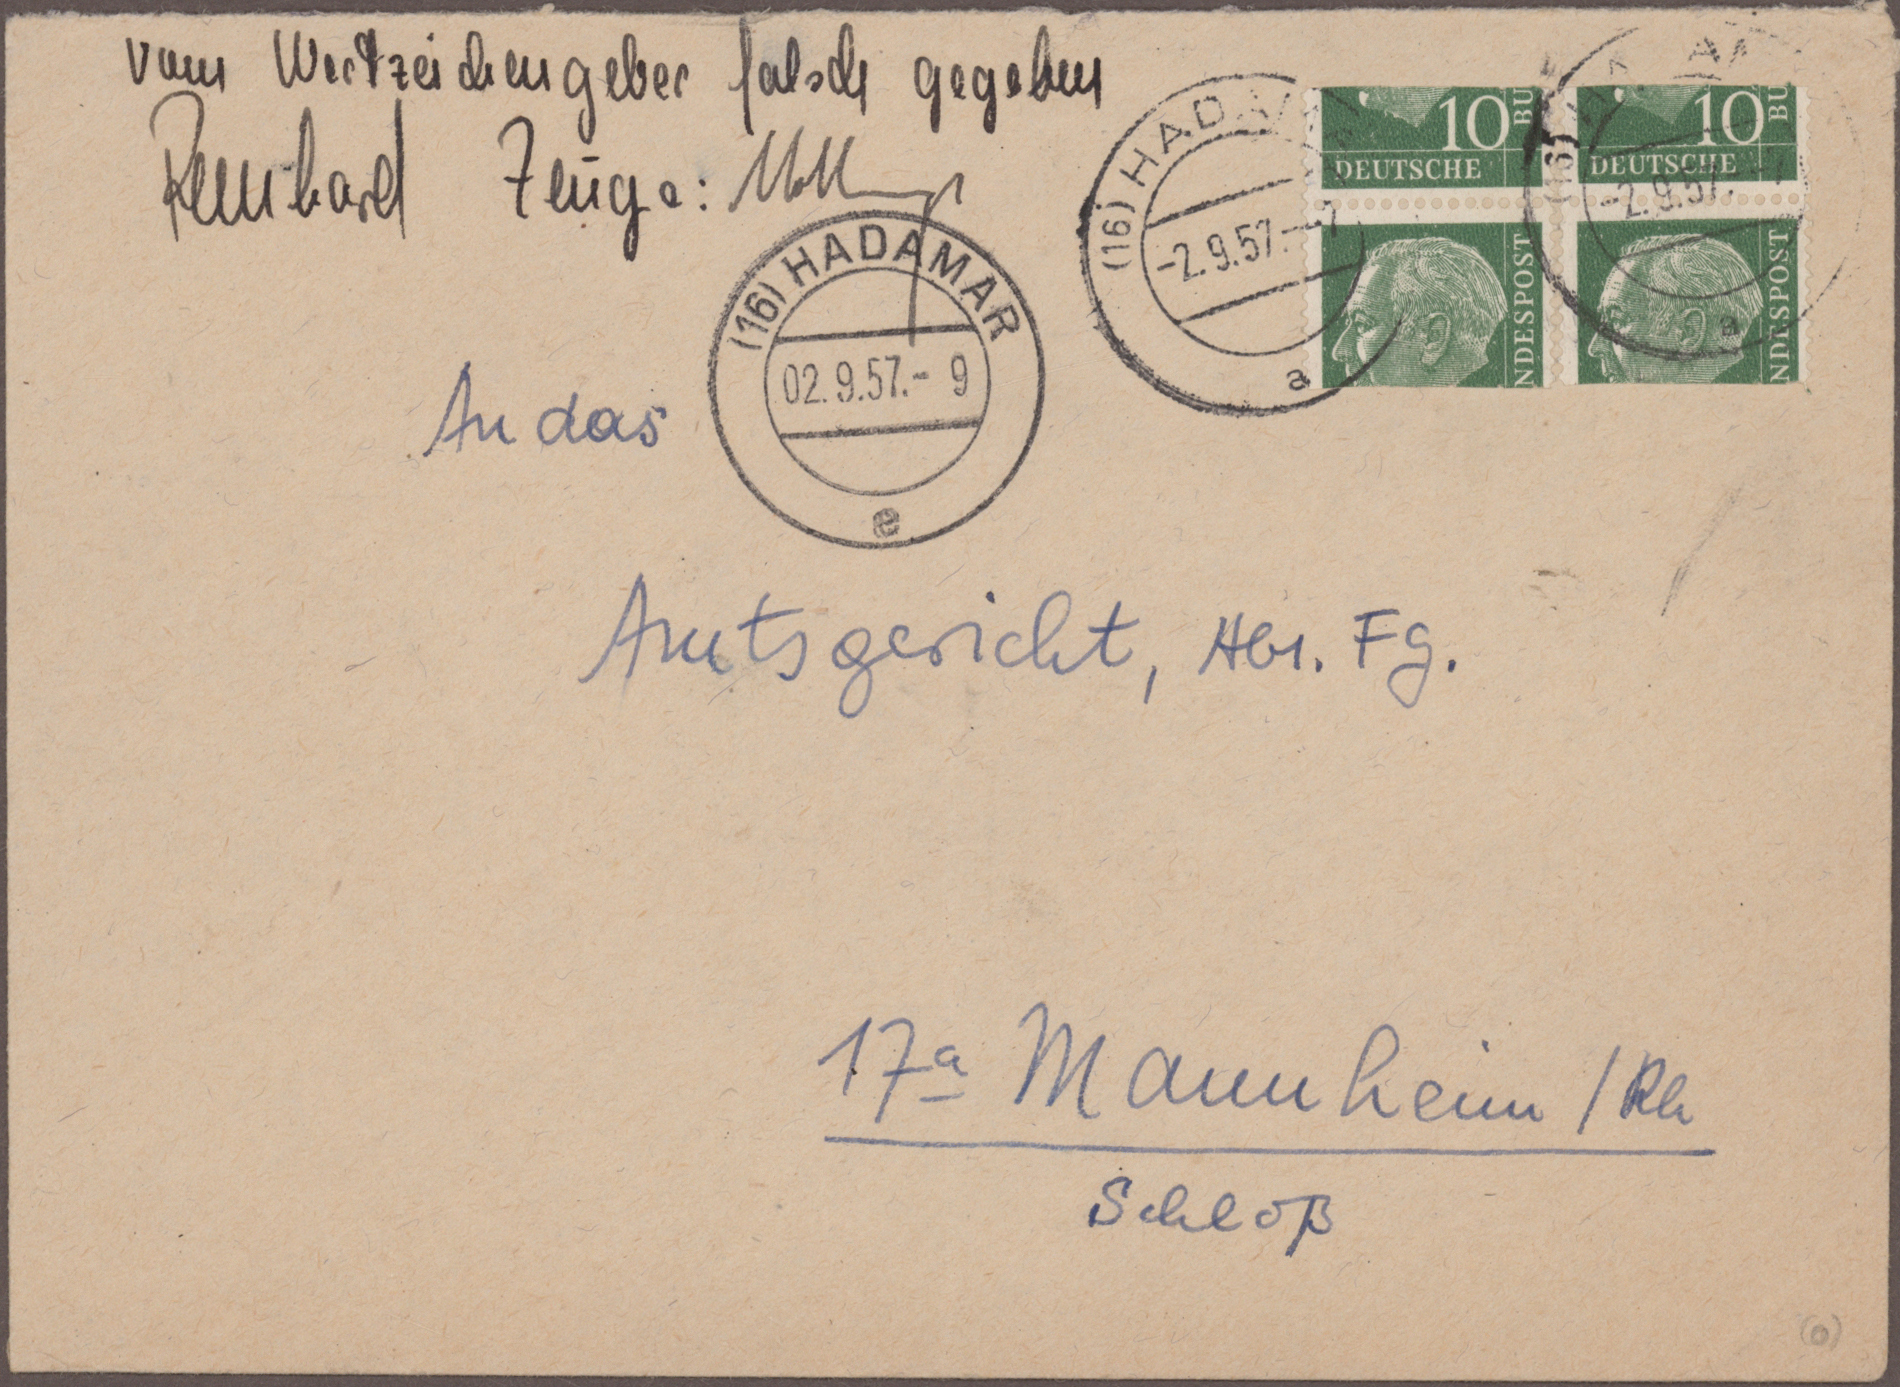 vom Wertzeichengeber falsch gegeben
Reinhard Zeuge:
(16) HADAMAR
-2.9.57.-7
a
10
DEUTSCHE
BU
NDESPOST
10
DEUTSCHE
BU
NDESPOST
(16)
-2.9.57.
a
(16) HADAMAR
02.9.57.- 9
e
An das
Amtsgericht, Abt. Fg.
17a Mannheim /Rh
Schloß